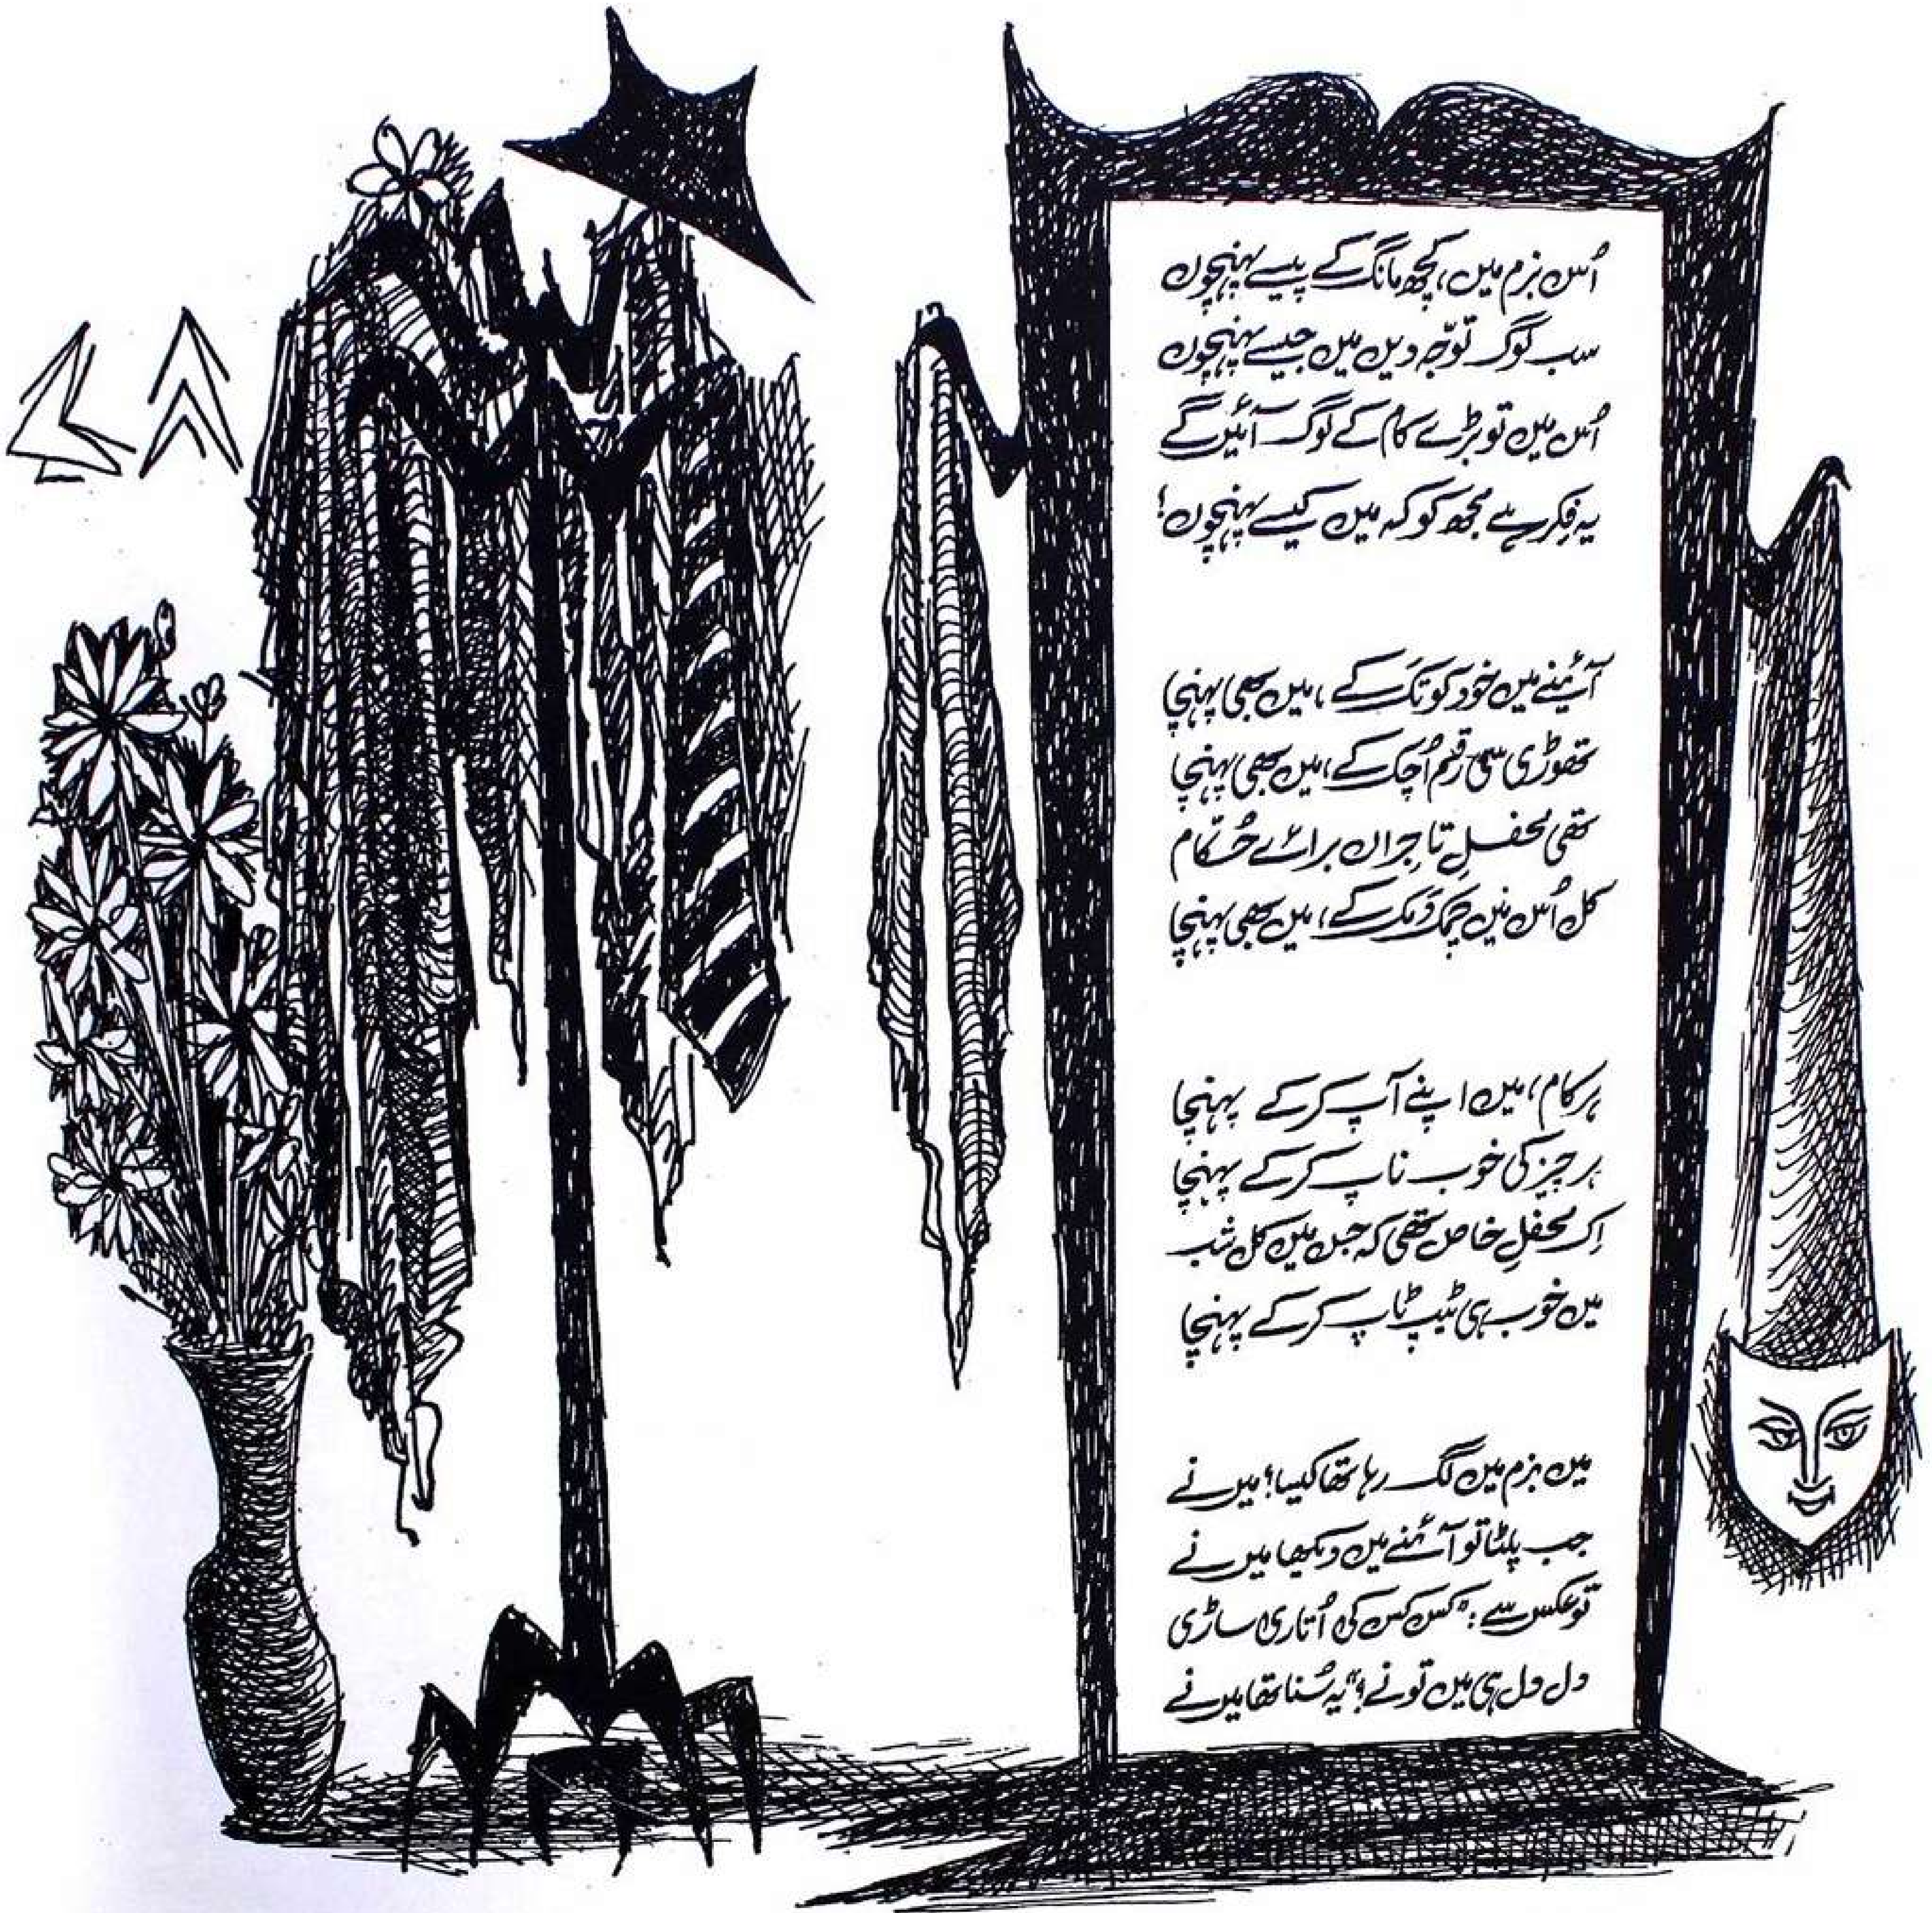 اُس بزم میں، کچھ مانگ کے پیسے پہنچوں
سب لوگ توجّہ دیں میں جیسے پہنچوں
اُس میں تو بڑے کام کے لوگ آئیں گے
یہ فِکر ہے مجھ کو کہ میں کیسے پہنچوں؟
آئینے میں خود کو تَک کے، میں بھی پہنچا
تھوڑی سی رقم اُچک کے، میں بھی پہنچا
تھی محفلِ تاجِراں برائے حُکّام
کل اُس میں چمک دَمک کے، میں بھی پہنچا
ہر کام، میں اپنے آپ کر کے پہنچا
ہر چیز کی خوب ناپ کر کے پہنچا
اِک محفلِ خاص تھی کہ جس میں کل شب
میں خوب ہی ٹیپ ٹاپ کر کے پہنچا
میں بزم میں لگ رہا تھا کیسا؟ میں نے
جب پلٹا تو آئنے میں دیکھا میں نے
تو عکس سے: "کس کس کی اُتاری ساڑی
دل دل ہی میں تو نے؟" یہ سُنا تھا میں نے